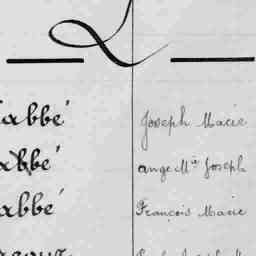 L
abbé Joseph Marie
abbé ange Mie Joseph
abbé François Marie